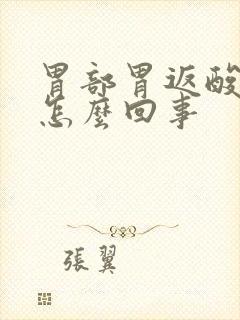 胃部胃返酸
怎麼回事
張翼